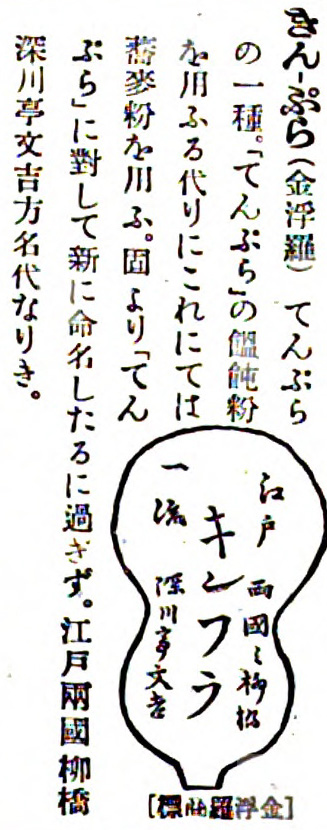 きん-ぷら(金浮羅) てんぷら
の一種。「てんぷら」の饂飩粉
を用ふる代りにこれにては
蕎麥粉を用ふ。固より「てん
ぷら」に對して新に命名したるに過ぎず。江戸兩國柳橋
深川亭文吉方名代なりき。
江戸 両國々柳橋
キンフラ
一流 深川亭文吉
[標曲羅浮金]